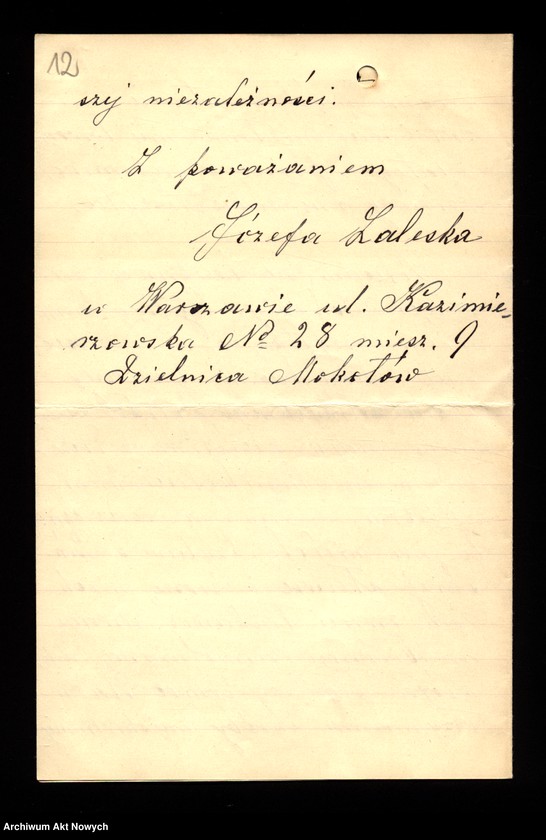 12
szej niezależności.
Z poważaniem
Józefa Zaleska
w Warszawie ul. Kazimie-
rzowska No 28 miesz. 9
Dzielnica Mokotów
Archiwum Akt Nowych